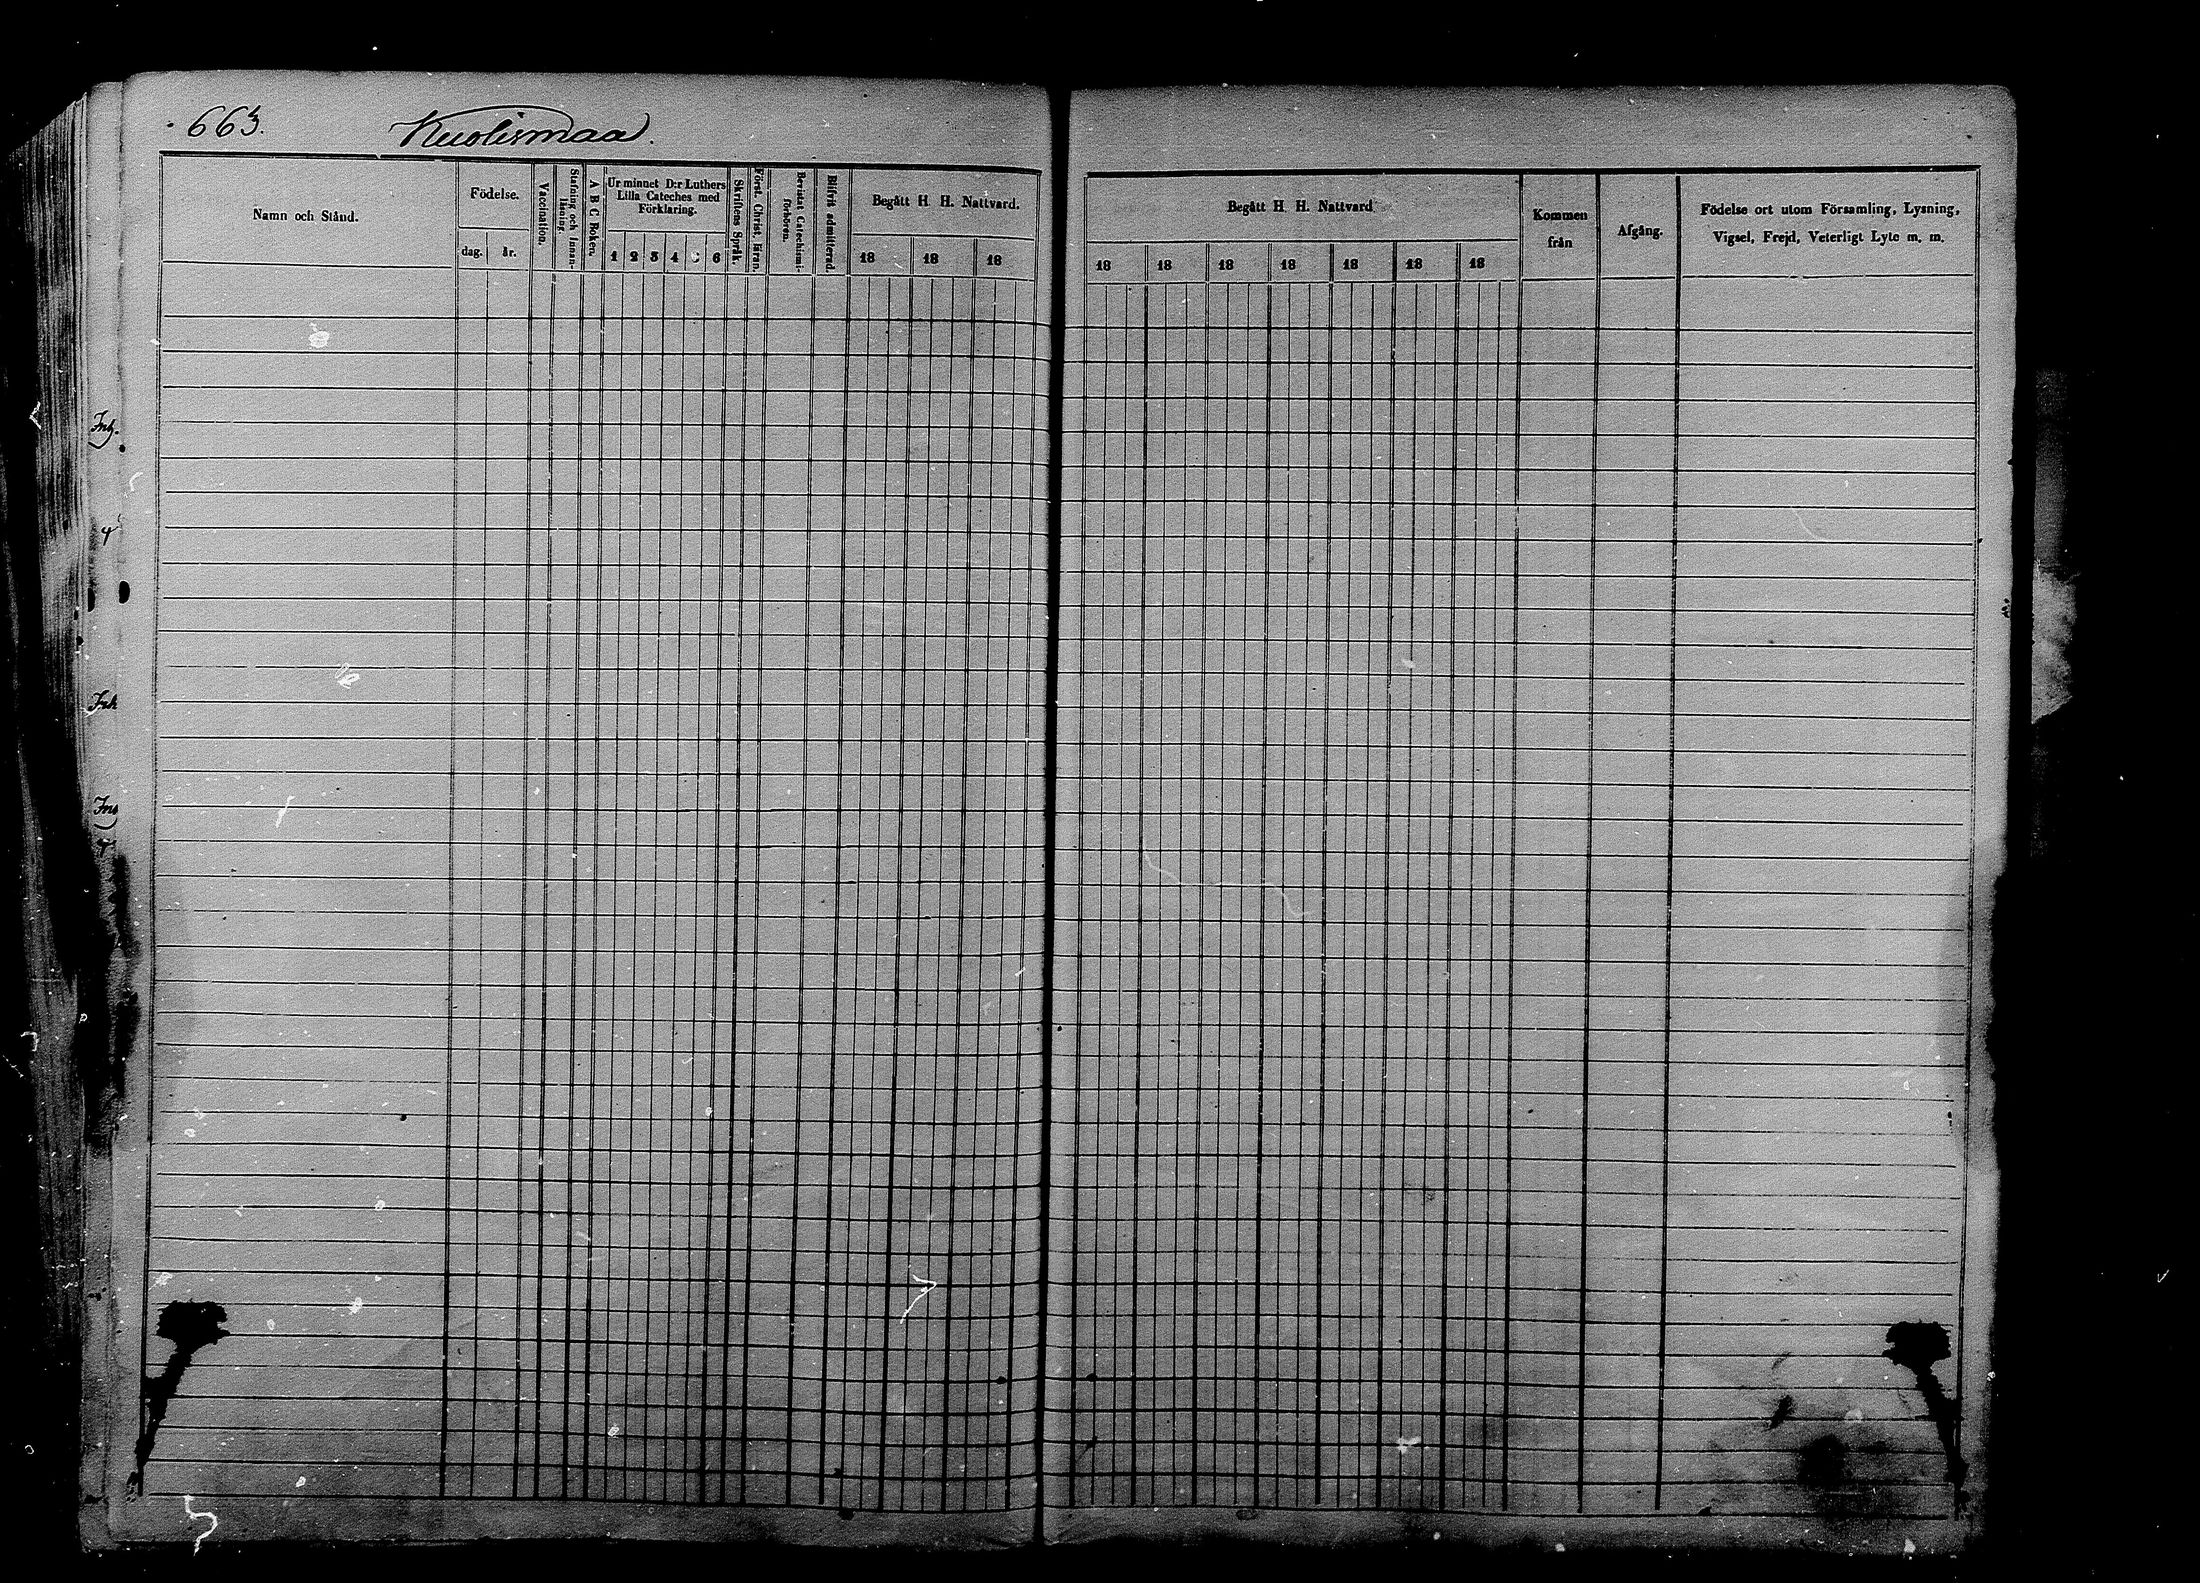 663.
Kuolismaa.
Namn och Stånd.
Födelse.
dag.
år.
Vaccination.
Stafning och Innanläsning.
A B C Boken.
Ur minnet D:r Luthers
Lilla Cateches med
Förklaring.
1 2 3 4 5 6
Skriftens Språk.
Först. Christ. läran.
Bevistat Catechismi-
förhören.
Blifvit admitterad.
Begått H. H. Nattvard.
18 18 18
Begått H. H. Nattvard
18 18 18 18 18 18 18
Kommen
från
Afgång.
Födelse ort utom Församling, Lysning,
Vigsel, Frejd, Veterligt Lyte m. m.
Inh.
Inh